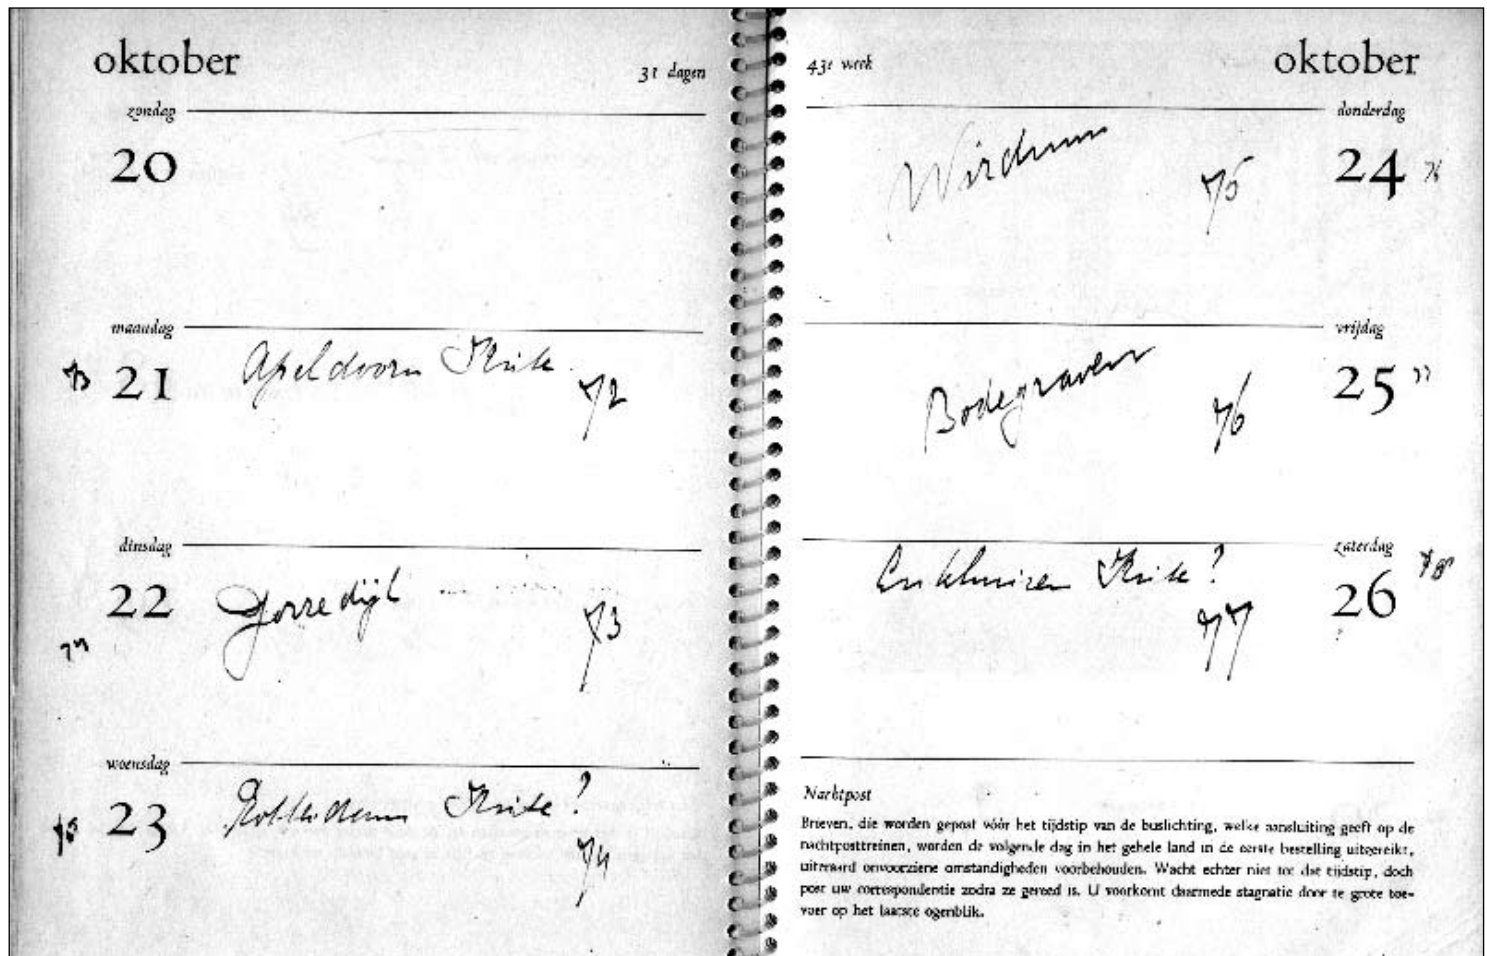 oktober
31 dagen
zondag
20
maandag
73 21 Apeldoorn Krite 72
dinsdag
22 Gorredijk 73
74
woensdag
75 23 Rotterdam Krite? 74
43e week
oktober
donderdag
Wirdum 75 24 76
vrijdag
Bodegraven 76 25 77
zaterdag
Enkhuizen Krite? 77 26 78
Nachtpost
Brieven, die worden gepost vóór het tijdstip van de buslichting, welke aansluiting geeft op de
nachtposttreinen, worden de volgende dag in het gehele land in de eerste bestelling uitgereikt,
uiteraard onvoorziene omstandigheden voorbehouden. Wacht echter niet tot dat tijdstip, doch
post uw correspondentie zodra ze gereed is. U voorkomt daarmede stagnatie door te grote toe-
voer op het laatste ogenblik.